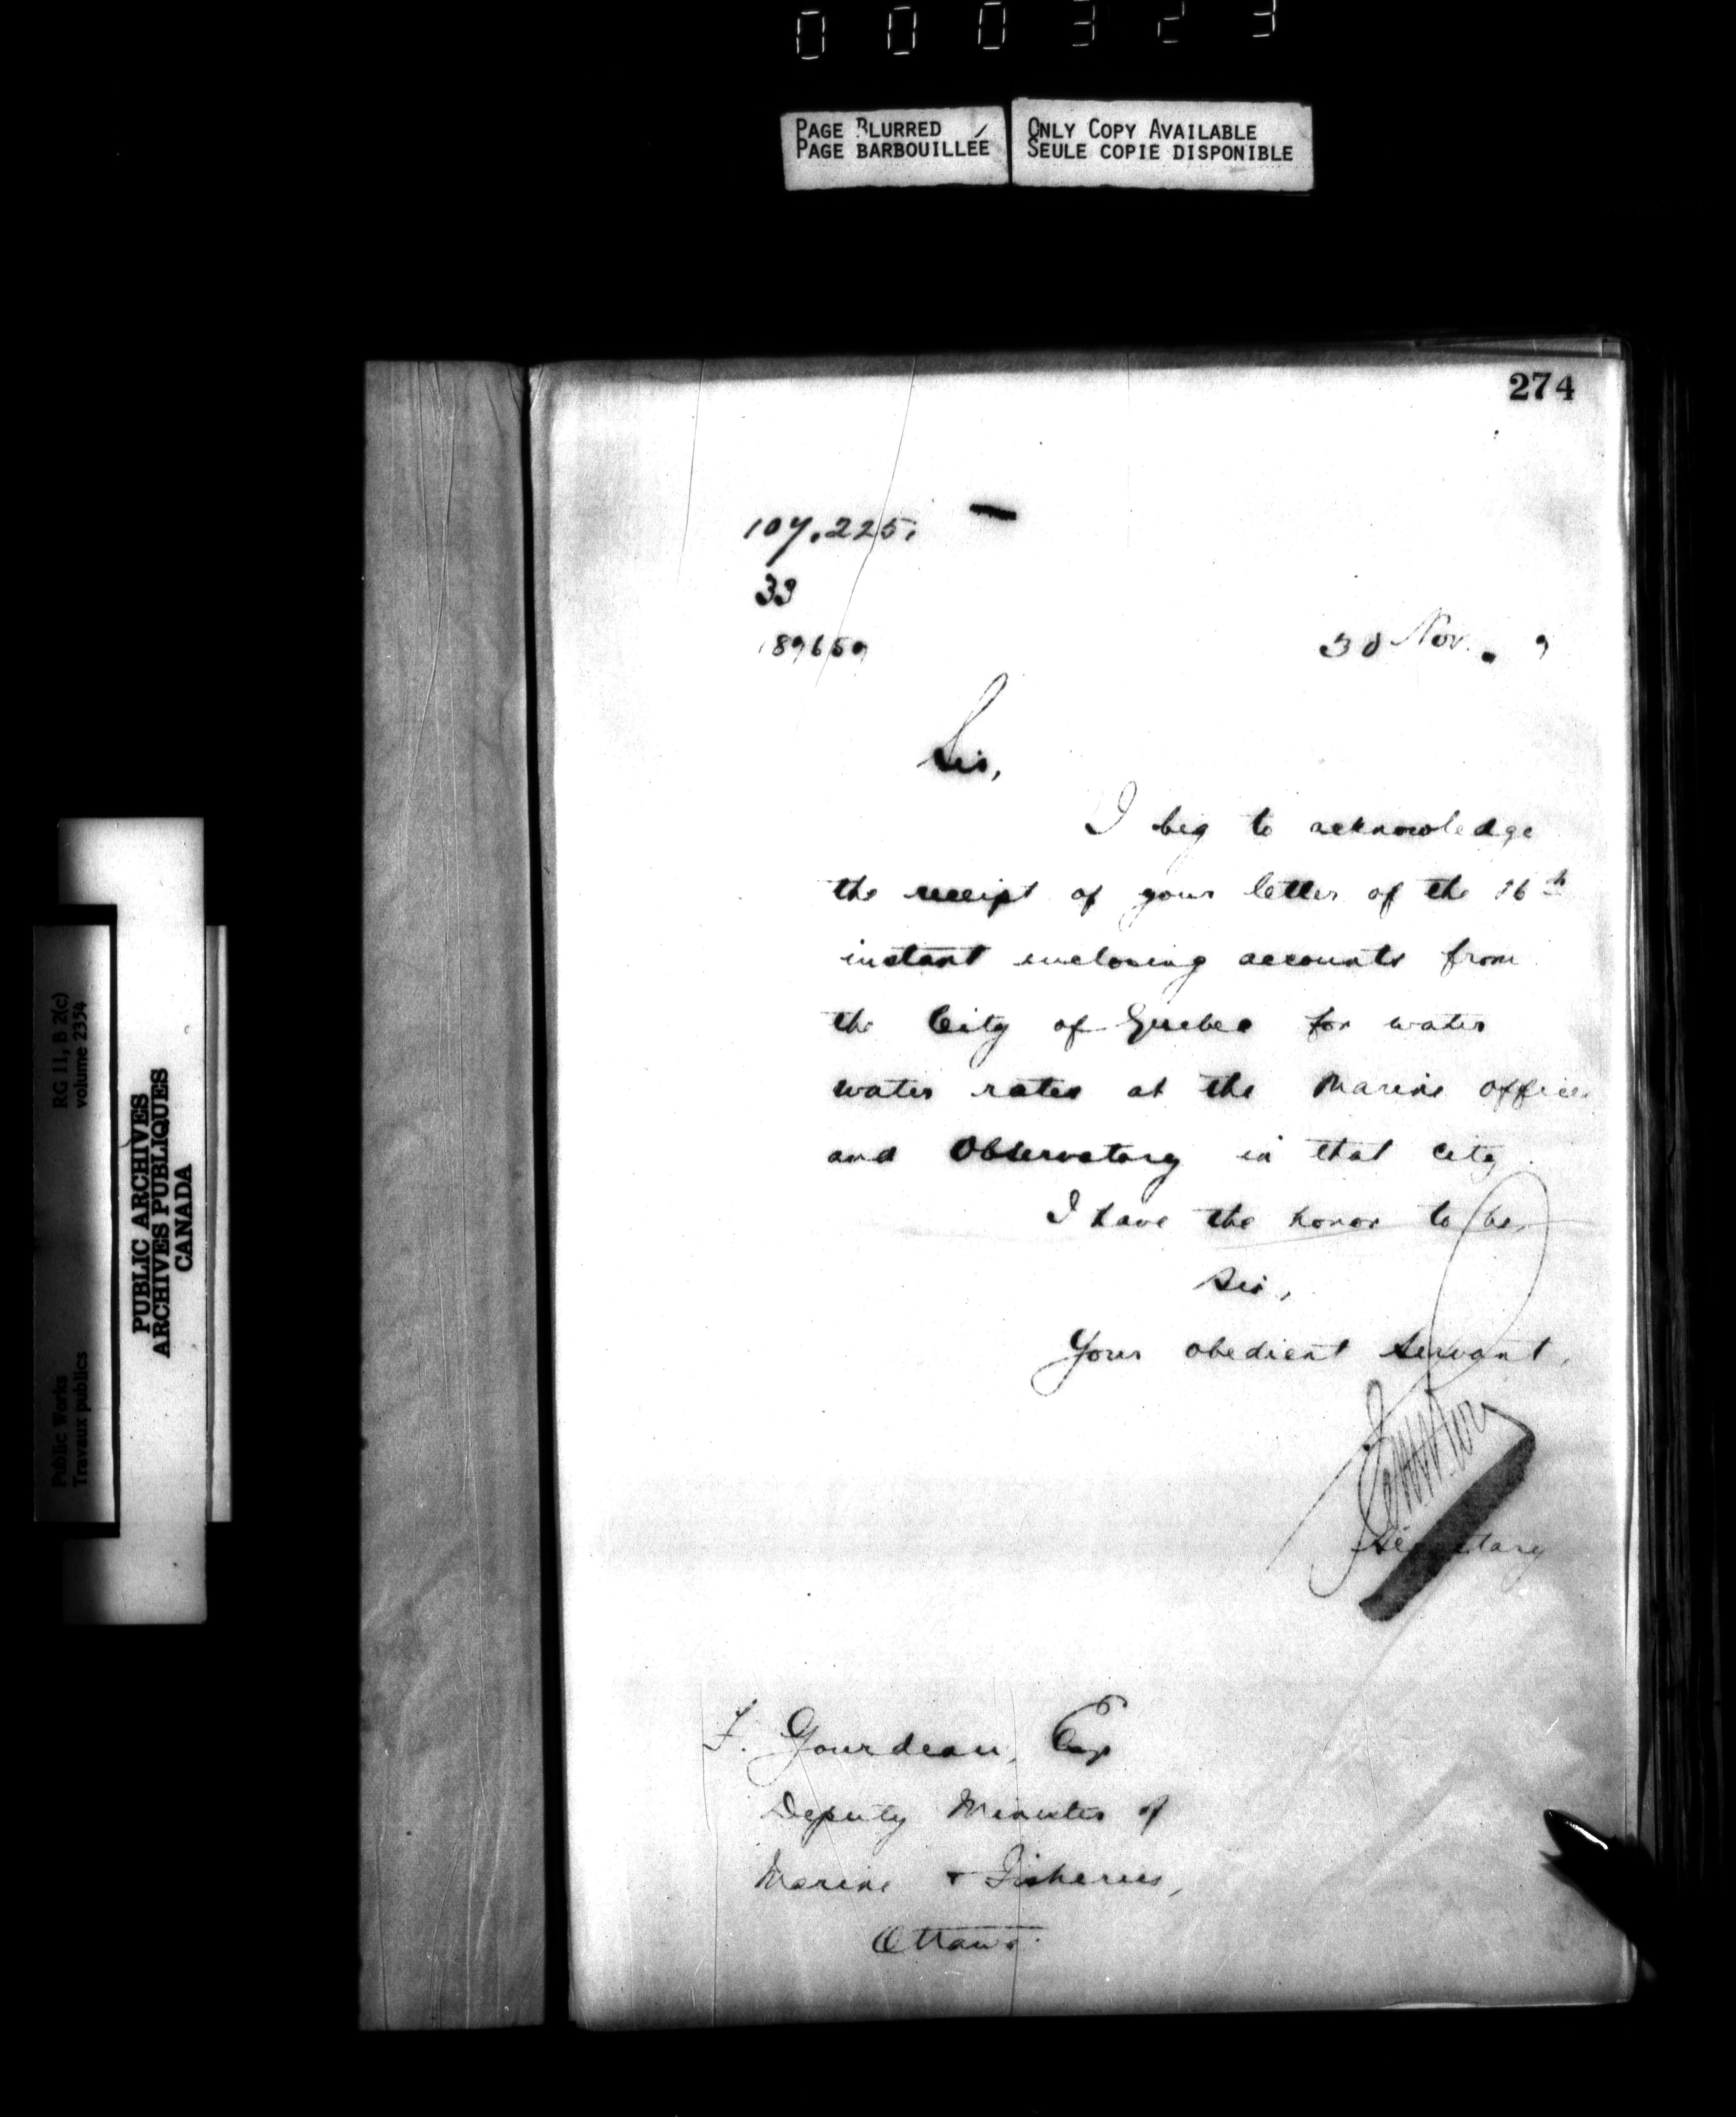 000323
PAGE BLURRED
PAGE BARBOUILLÉE
ONLY COPY AVAILABLE
SEULE COPIE DISPONIBLE
274
107.225.
33
189659
30 Nov. 9
Sir,
I beg to acknowledge
the receipt of your letter of the 26th
instant enclosing accounts from
the City of Quebec for water
water rates at the Marine office
and Observatory in that city.
I have the honor to be,
Sir,
Your obedient servant,
Secretary
F. Gourdeau, Esq
Deputy Minister of
Marine & Fisheries,
Ottawa
RG 11, B 2(c)
volume 2354
Public Works
Travaux publics
PUBLIC ARCHIVES
ARCHIVES PUBLIQUES
CANADA